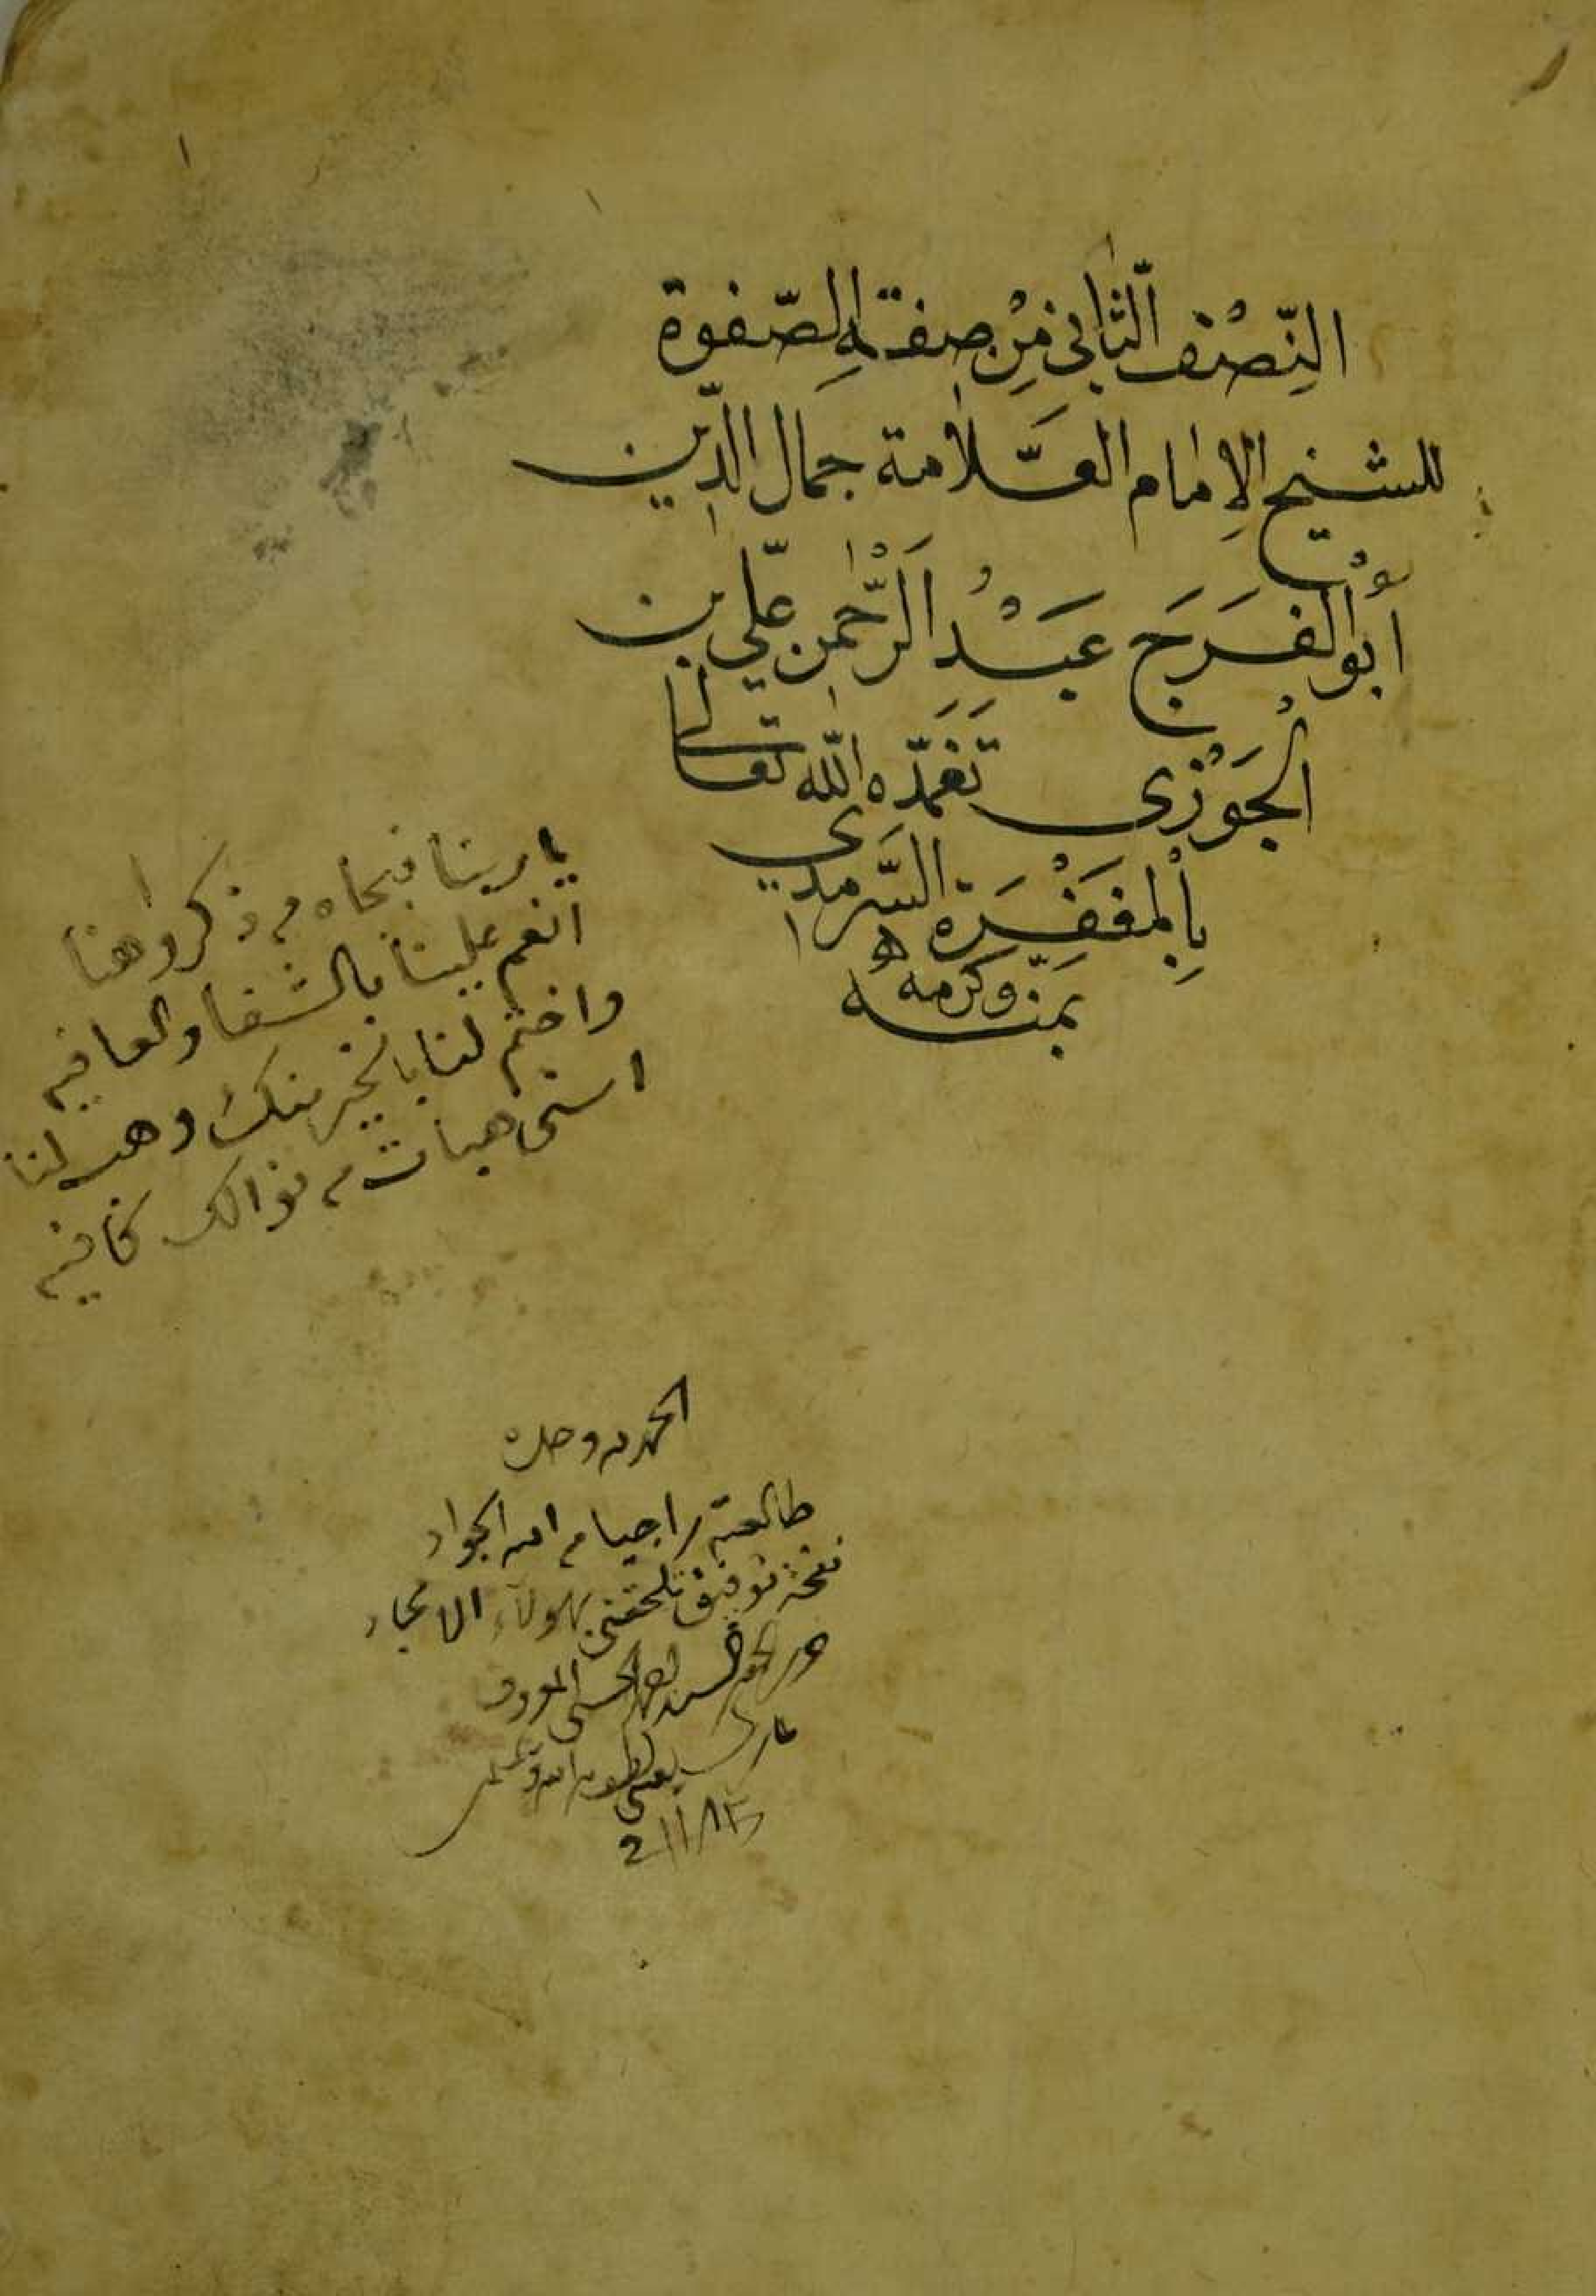 النِّصْف الثَّاني مِنْ صِفة الصّفوة
للشيخ الإمام العَلّامة جمال الدّين
أبُو الفَرَج عَبْدُ الرَّحْمن عَلي بن
الجَوْزي تَغَمّدَه الله تعَالى
بِالْمَغفِرَة السَّرمدي
بمَنّه وكرمه
يا ربنا فبجاه من ذكروا هنا
انعم علينا بالشفا والعافيه
واختم لنا بالخير منك وهب لنا
اسنى هبات من نوالك كافيه
الحمد لله وحده
طالعته راجيا من الله الجواد
نفحة توفيق تلحقني بهولاء الامجاد
السيد الحسني المعروف